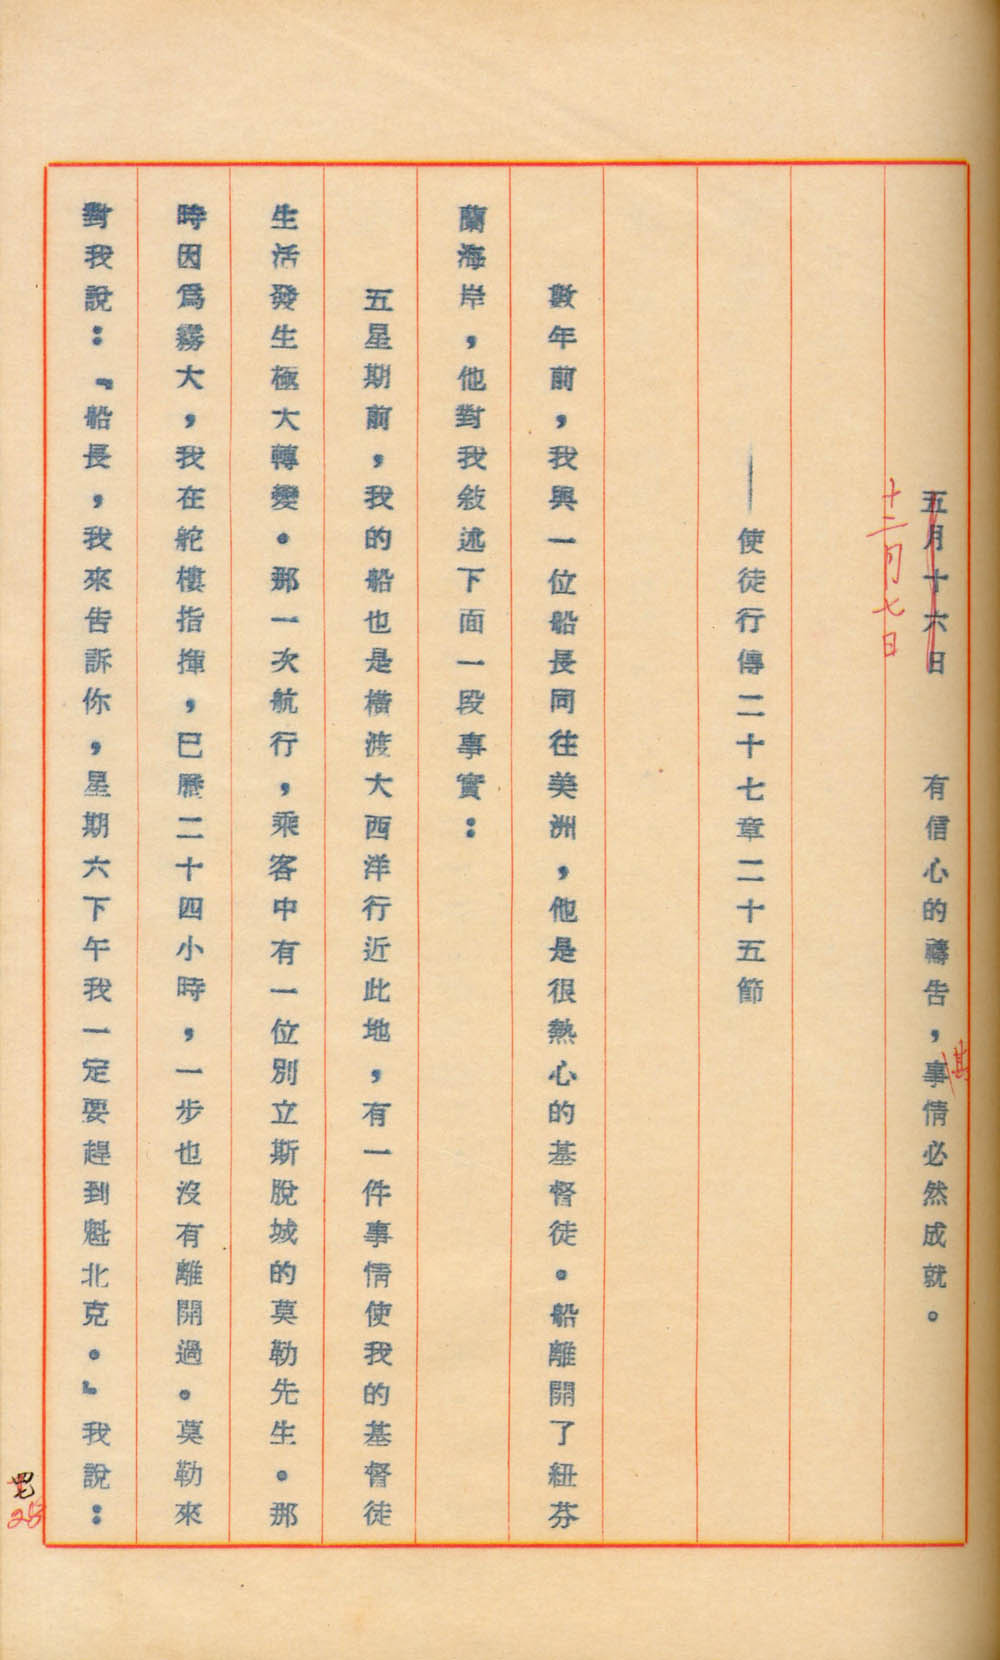 五月十六日　有信心的禱告，事情必然成就。
其
十二月七日
——使徒行傳二十七章二十五節
數年前，我與一位船長同往美洲，他是很熱心的基督徒。船離開了紐芬
蘭海岸，他對我敍述下面一段事實：
五星期前，我的船也是橫渡大西洋行近此地，有一件事情使我的基督徒
生活發生極大轉變。那一次航行，乘客中有一位別立斯脫城的莫勒先生。那
時因爲霧大，我在舵樓指揮，已歷二十四小時，一步也沒有離開過。莫勒來
對我說：『船長，我來告訴你，星期六下午我一定要趕到魁北克。』我說：